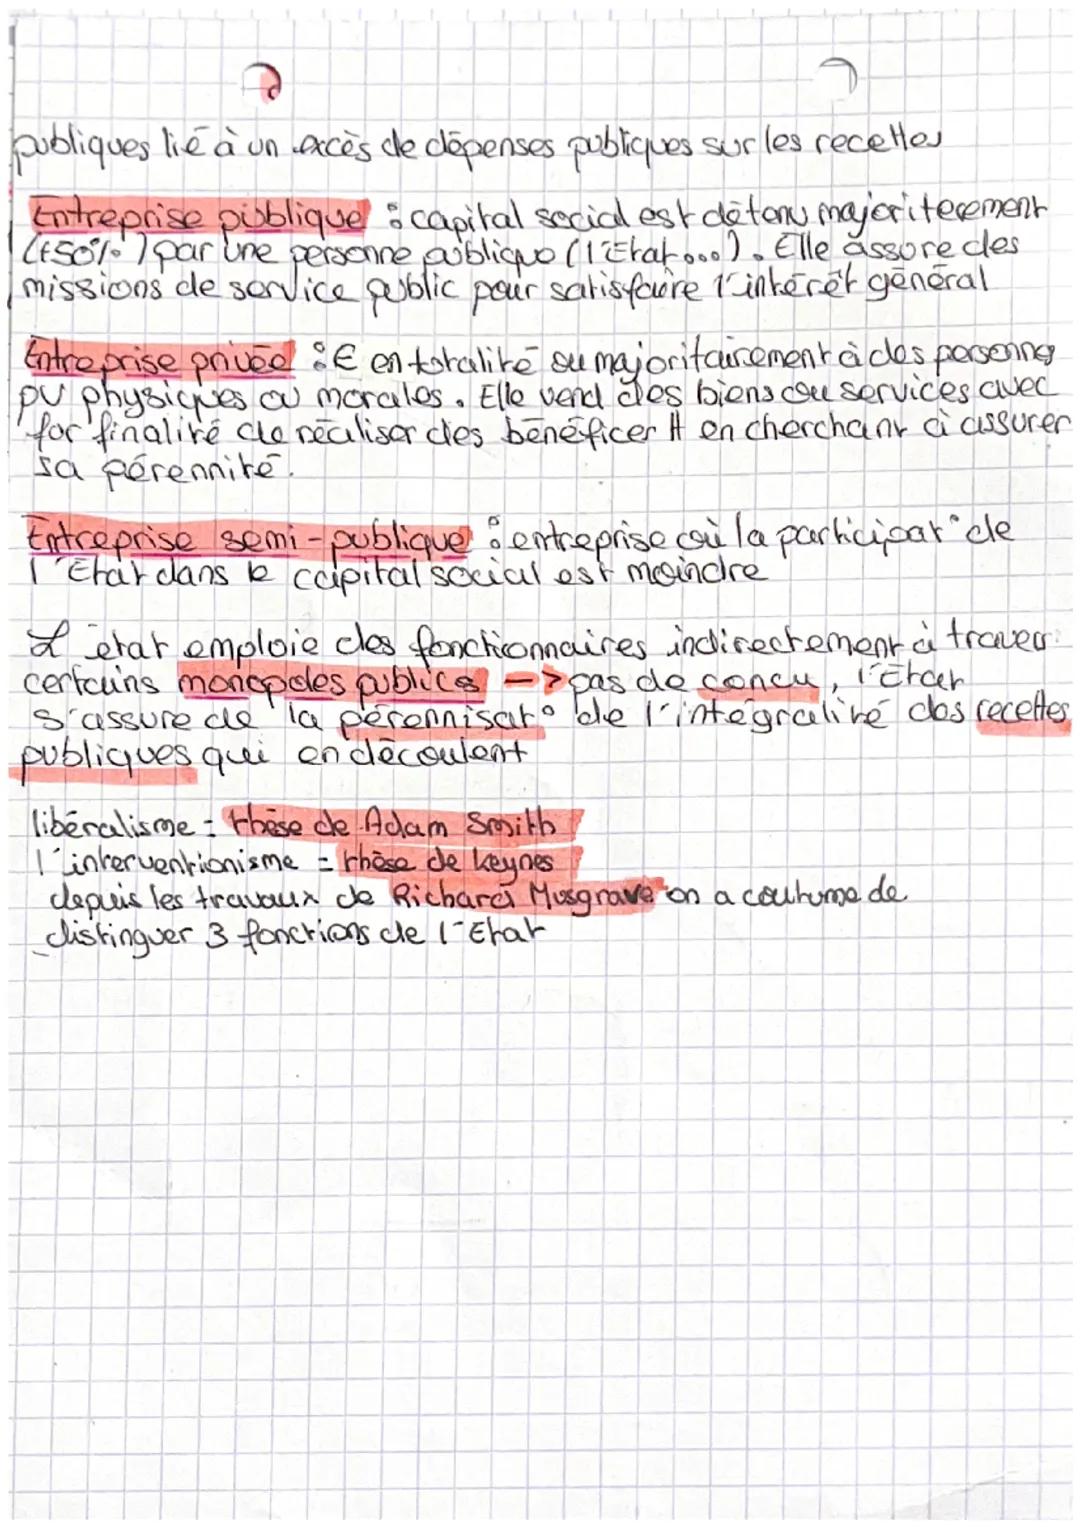 publiques lié à un excès de dépenses publiques sur les recettes
Entreprise publique : capital social est détenu majoriterement
(+50%) par une personne publique (l'Etat...). Elle assure des
missions de service public pour satisfaire l'intérêt général
Entreprise privée : € en totalité ou majoritairement à des personnes
pv physiques ou morales. Elle vend des biens ou services avec
for finalité de réaliser des bénéficer tt en cherchant à assurer
sa pérennité.
Entreprise semi-publique : entreprise où la participat° de
l'Etat dans le capital social est moindre
L'état emploie des fonctionnaires indirectement à travers
certains monopoles publics -> pas de concu, l'Etat
s'assure de la pérennisat° de l'intégralité des recettes
publiques qui en découlent
libéralisme = thèse de Adam Smith
l'interventionisme = thèse de Keynes
depuis les travaux de Richard Musgrave on a coutume de
distinguer 3 fonctions de l'Etat